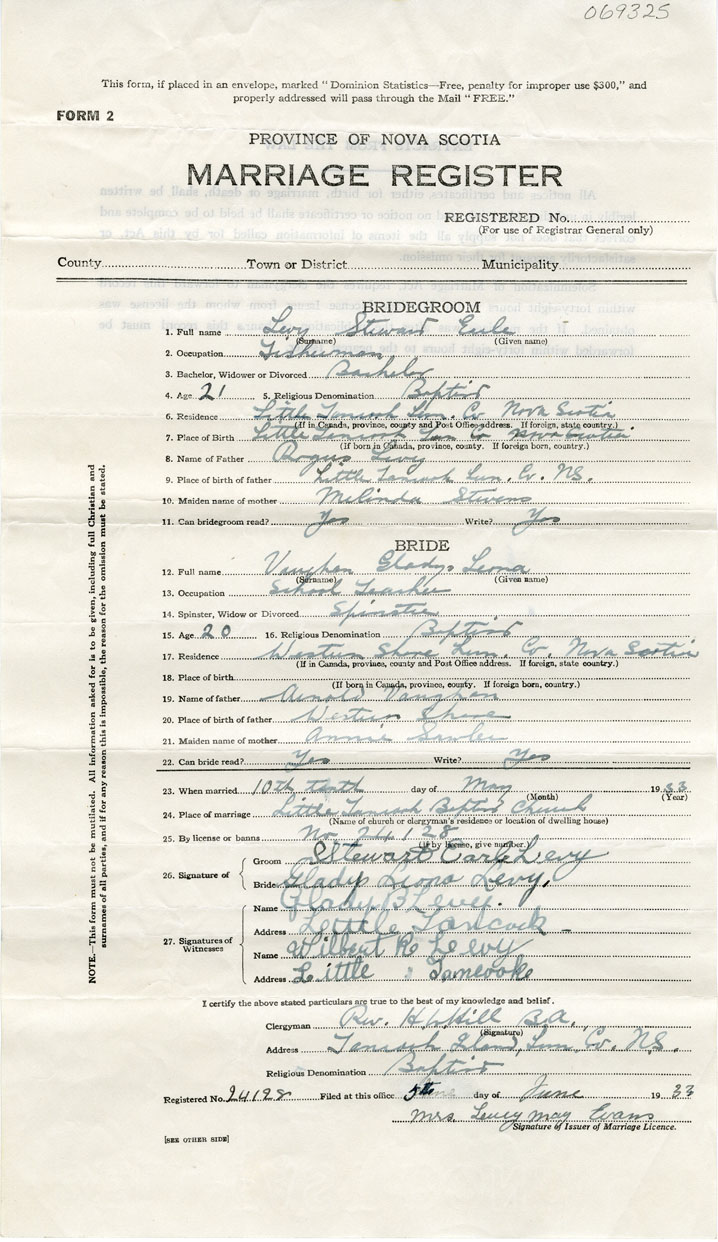 069325
This form, if placed in an envelope, marked "Dominion Statistics—Free, penalty for improper use $300," and
properly addressed will pass through the Mail "FREE."
FORM 2
PROVINCE OF NOVA SCOTIA
MARRIAGE REGISTER
REGISTERED No.
(For use of Registrar General only)
County Town or District Municipality
BRIDEGROOM
1. Full name Levy Steward Earle
(Surname) (Given name)
2. Occupation Fisherman
3. Bachelor, Widower or Divorced Bachelor
4. Age 21 5. Religious Denomination Baptist
6. Residence Little Tancook Lun. Co Nova Scotia
(If in Canada, province, county and Post Office address. If foreign, state country.)
7. Place of Birth Little Tancook Lun Co Nova Scotia
(If born in Canada, province, county. If foreign born, country.)
8. Name of Father Levy
9. Place of birth of father Little Tancook Lun. Co. N.S.
10. Maiden name of mother Melinda Stevens
11. Can bridegroom read? Yes Write? Yes
BRIDE
12. Full name Vaughan Gladys Leona
(Surname) (Given name)
13. Occupation School Teacher
14. Spinster, Widow or Divorced Spinster
15. Age 20 16. Religious Denomination Baptist
17. Residence Western Shore Lun. Co. Nova Scotia
(If in Canada, province, county and Post Office address. If foreign, state country.)
18. Place of Birth
(If born in Canada, province, county. If foreign born, country.)
19. Name of father Arnold Vaughan
20. Place of birth of father Western Shore
21. Maiden name of mother Annie Sawler
22. Can bride read? Yes Write? Yes
23. When married 10th tenth day of May 1933
(Month) (Year)
24. Place of marriage Little Tancook Baptist Church
(Name of church or clergyman's residence or location of dwelling house)
25. By license or banns No. 24128
(If by license, give number.)
26. Signature of
Groom Stewart Earl Levy
Bride Gladys Leona Levy.
27. Signatures of Witnesses
Name Gladys B Levy.
Address Little Tancook
Name Wilbert R Levy
Address Little Tamcooke
I certify the above stated particulars are true to the best of my knowledge and belief.
Clergyman Rev. H Hill B.A.
(Signature)
Address Tancook Island, Lun. Co. N.S.
Religious Denomination Baptist
Registered No. 24128 Filed at this office 5th day of June 1933
Mrs. Levey May Evans
Signature of Issuer of Marriage Licence.
[SEE OTHER SIDE]
NOTE.—This form must not be mutilated. All information asked for is to be given, including full Christian and
surnames of all parties, and if for any reason this is impossible, the reason for the omission must be stated.